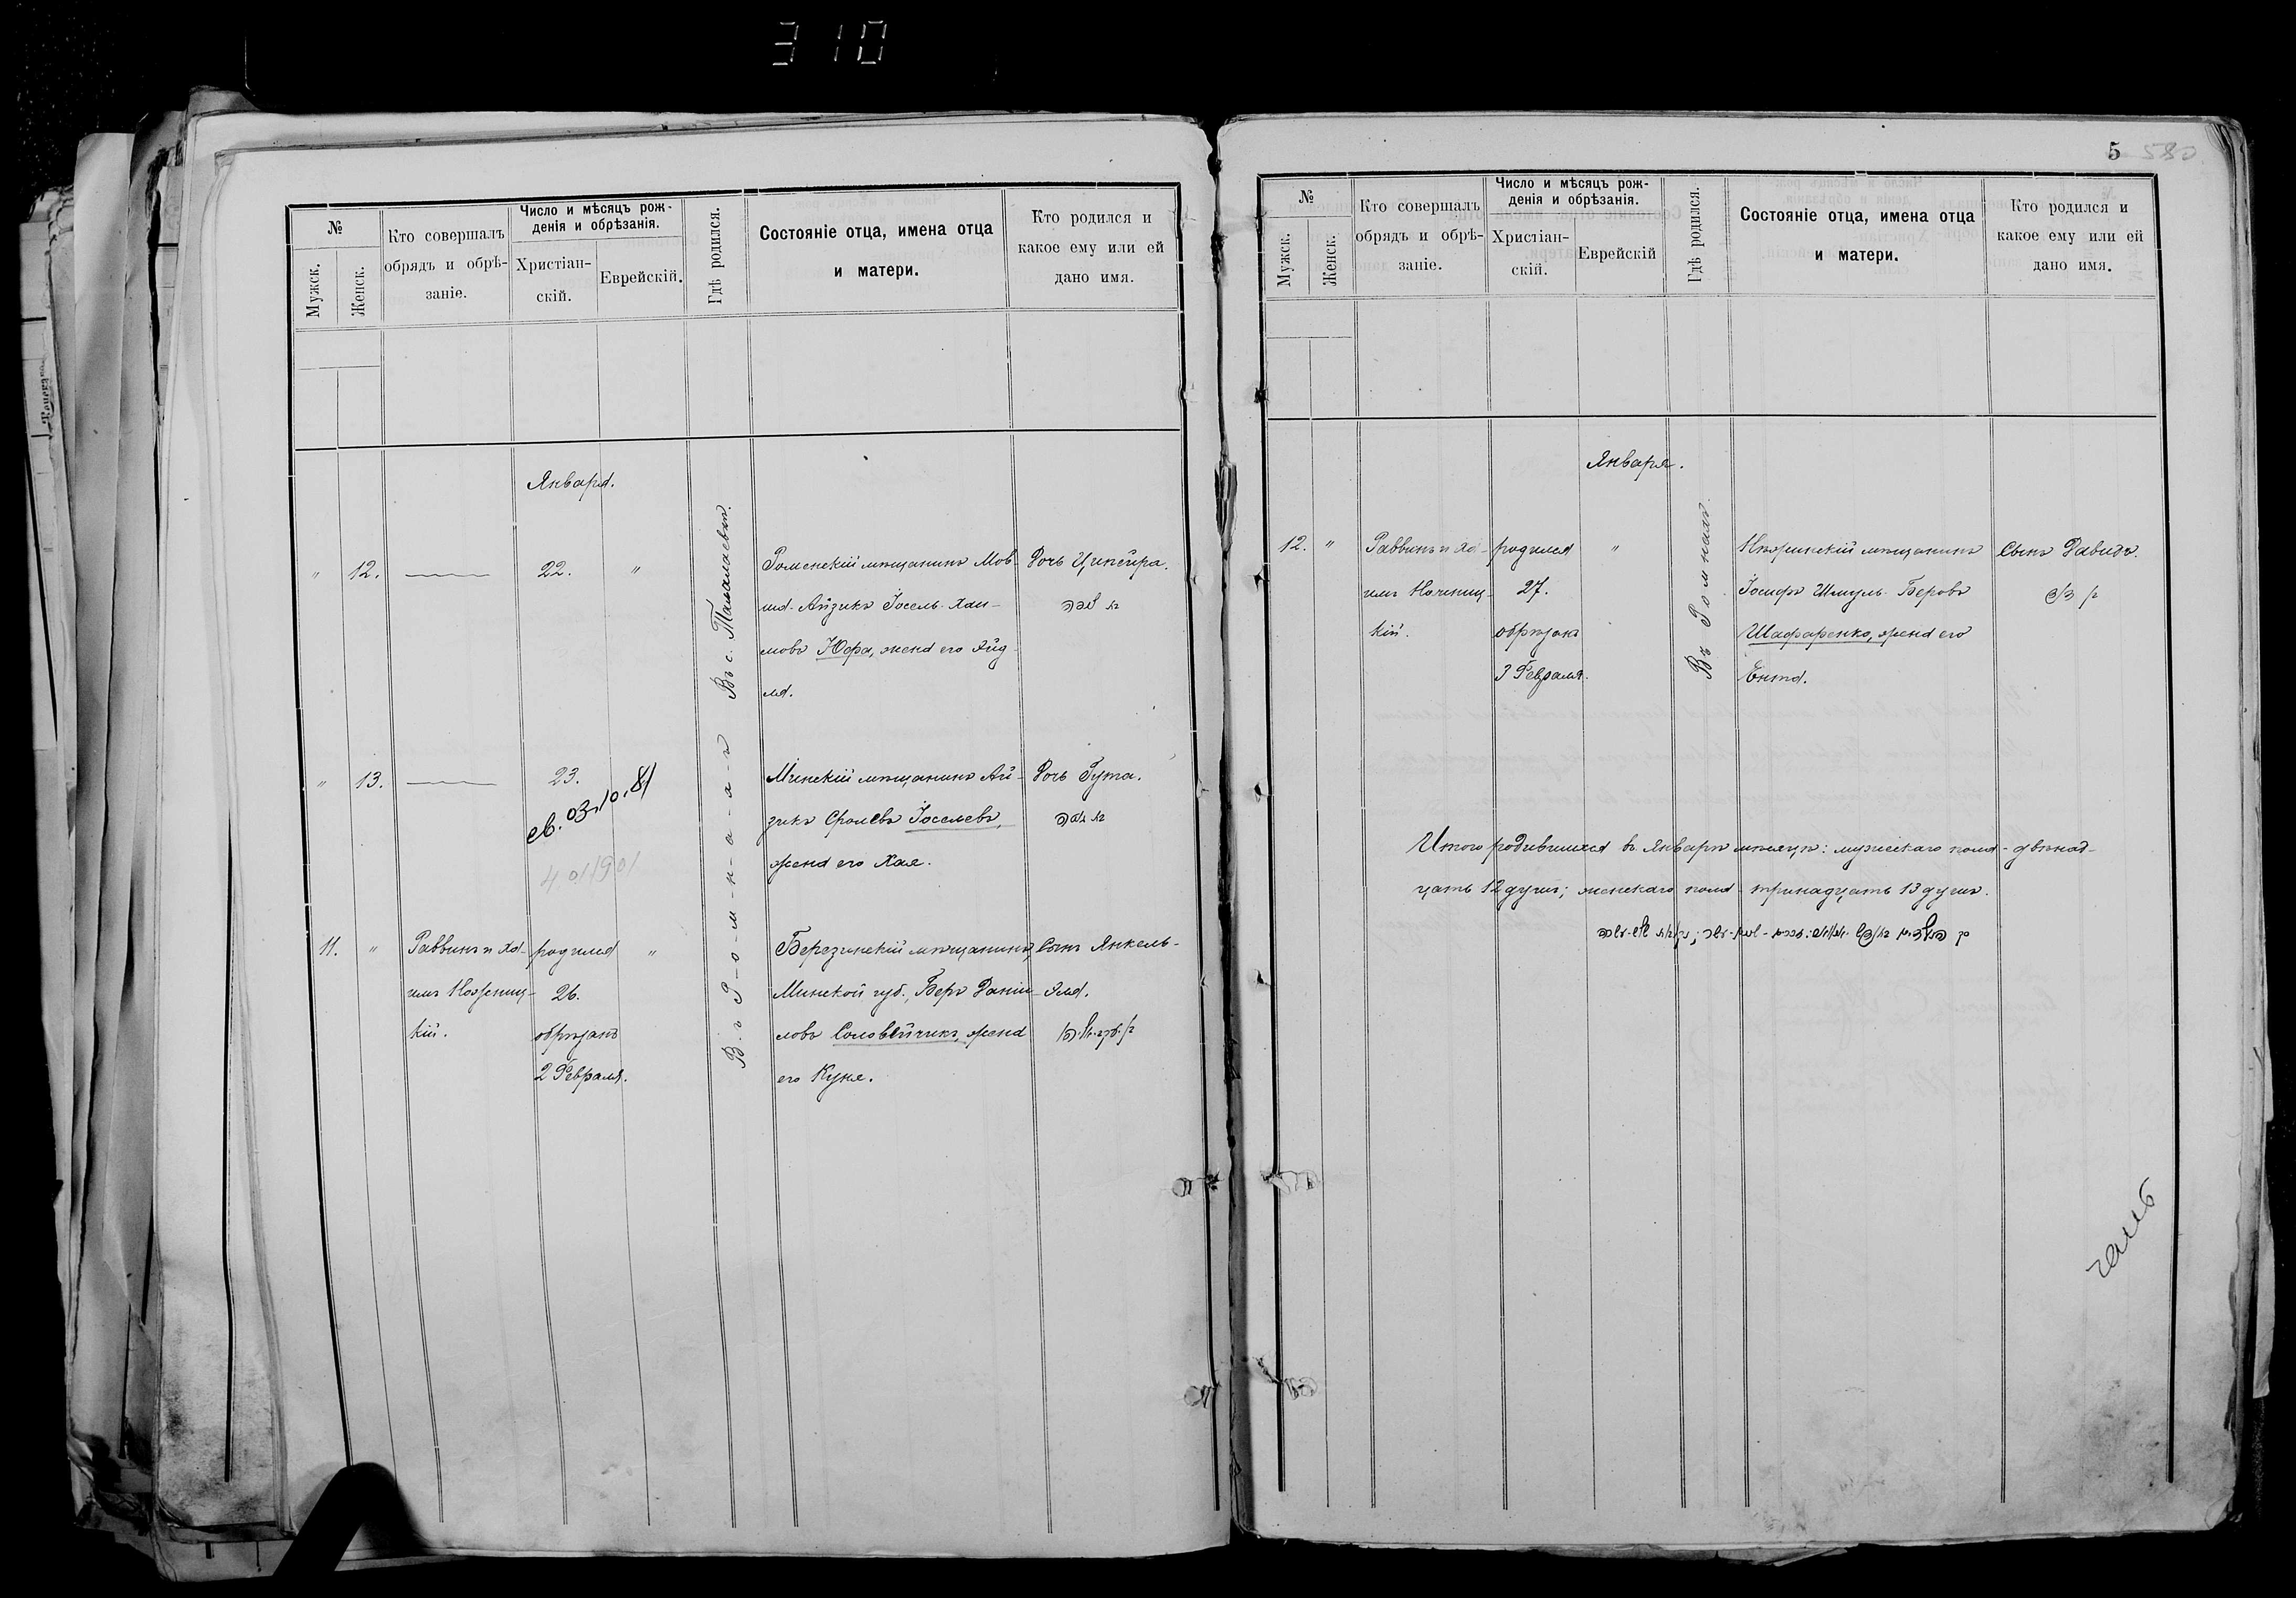 310
№
Мужск.
Женск.
Кто совершалъ
обрядъ и обрѣ-
заніе.
Число и мѣсяцъ рож-
денія и обрѣзанія.
Христіан-
скій.
Еврейскій.
Гдѣ родился.
Состояніе отца, имена отца
и матери.
Кто родился и
какое ему или ей
дано имя.
Января.
" 12. 22. "
Въ с. Талалаевкѣ.
Роменскій мѣщанинъ Мов-
ша-Айзикъ Іосель-Хаи-
мовъ Юфа, жена его Эйд-
ля.
Дочь Ципейра.
" 13. 23.
св. 03.10.81
401190/
Минскій мѣщанинъ Ай-
зикъ Сролевъ Іоселевъ,
жена его Хая.
Дочь Гута.
11. "
Раввинъ и Ха-
имъ Ножениц-
кій.
родился
26.
обрѣзанъ
2 Февраля.
"
В-ъ Р-о-м-н-а-х-ъ
Березинскій мѣщанинъ,
Минской губ., Беръ Даніи-
ловъ Соловейчикъ, жена
его Куня.
Сынъ Янкель-
Эля.
5 580
№
Мужск.
Женск.
Кто совершалъ
обрядъ и обрѣ-
заніе.
Число и мѣсяцъ рож-
денія и обрѣзанія.
Христіан-
скій.
Еврейскій
Гдѣ родился.
Состояніе отца, имена отца
и матери.
Кто родился и
какое ему или ей
дано имя.
Января.
12. "
Раввинъ и Ха-
имъ Ножениц-
кій.
родился
27.
обрѣзанъ
3 Февраля.
"
Въ Ромнахъ.
Нѣжинскій мѣщанинъ
Іосифъ Шмуль-Беровъ
Шафаренко, жена его
Ента.
Сынъ Давидъ.
Итого родившихся въ Январѣ мѣсяцѣ: мужескаго пола - двѣнад-
цать 12 душъ; женскаго пола - тринадцать 13 душъ.